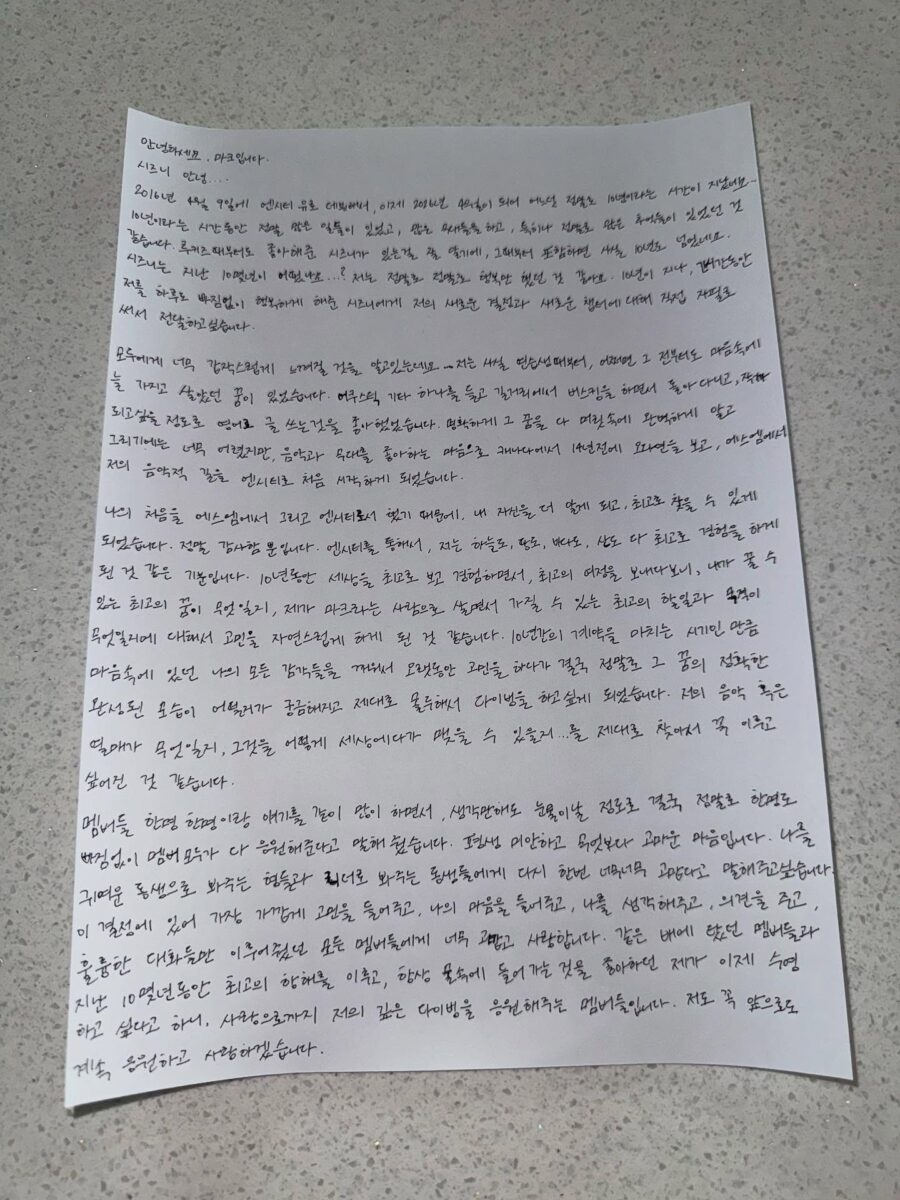 안녕하세요. 마크입니다.
시즈니 안녕....
2016년 4월 9일에 엔시티 유로 데뷔해서, 이제 2026년 4월이 되어 어느덧 정말로 10년이라는 시간이 지났네요..
10년이라는 시간동안 정말 많은 일들이 있었고, 많은 하고, 특히나 정말로 많은 추억들이 있었던 것
같습니다. 루키즈 때부터도 좋아해준 시즈니가 있는걸 잘 알기에, 그때부터 포함하면 사실 10년도 넘었네요.
시즈니는 지난 10몇년이 어땠나요...? 저는 정말로 정말로 행복만 했던 것 같아요. 10년이 지나, 긴 시간동안
저를 하루도 빠짐없이 행복하게 해준 시즈니에게 저의 새로운 결정과 새로운 챕터에 대해 직접 자필로
써서 전달하고 싶습니다.
모두에게 너무 갑작스럽게 느껴질 것을 알고있는데요... 저는 사실 연습생때부터, 어쩌면 그 전부터도 마음속에
늘 가지고 살았던 꿈이 있었습니다. 어쿠스틱 기타 하나를 들고 길거리에서 버스킹을 하면서 돌아다니고, 작가
되고싶을 정도로 영어로 글 쓰는것을 좋아했었습니다. 명확하게 그 꿈을 다 머릿속에 완벽하게 알고
그리기에는 너무 어렸지만, 음악과 무대를 좋아하는 마음으로 캐나다에서 14년전에 오디션을 보고, 에스엠에서
저의 음악적 길을 엔시티로 처음 시작하게 되었습니다.
나의 처음을 에스엠에서 그리고 엔시티로서 했기 때문에, 내 자신을 더 알게 되고, 최고로 찾을 수 있게
되었습니다. 정말 감사함 뿐입니다. 엔시티를 통해서, 저는 하늘도, 땅도, 바다도, 산도 다 최고로 경험을 하게
된 것 같은 기분입니다. 10년동안 세상을 최고로 보고 경험하면서, 최고의 여정을 보내다보니, 내가 꿀 수
있는 최고의 꿈이 무엇일지, 제가 마크라는 사람으로 살면서 가질 수 있는 최고의 할일과 목적이
무엇일지에 대해서 고민을 자연스럽게 하게 된 것 같습니다. 10년간의 계약을 마치는 시기인 만큼
마음속에 있던 나의 모든 감각들을 깨워서 오랫동안 고민을 하다가 결국 정말로 그 꿈의 정확한
완성된 모습이 어떨지가 궁금해지고 제대로 몰두해서 다이빙을 하고싶게 되었습니다. 저의 음악 혹은
열매가 무엇일지, 그것을 어떻게 세상에다가 맺을 수 있을지...를 제대로 찾아서 꼭 이루고
싶어진 것 같습니다.
멤버들 한명 한명이랑 얘기를 같이 많이 하면서, 생각만해도 눈물이날 정도로 결국 정말로 한명도
빠짐없이 멤버 모두가 다 응원해준다고 말해줬습니다. 평생 미안하고 무엇보다 고마운 마음입니다. 나를
귀여운 동생으로 봐주는 형들과 리더로 봐주는 동생들에게 다시 한번 너무너무 고맙다고 말해주고싶습니다.
이 결정에 있어 가장 가깝게 고민을 들어주고, 나의 마음을 들어주고, 나를 생각해주고, 의견을 주고,
훌륭한 대화들만 이루어줬던 모든 멤버들에게 너무 고맙고 사랑합니다. 같은 배에 탔던 멤버들과
지난 10몇년동안 최고의 항해를 이루고, 항상 물속에 들어가는것을 좋아하던 제가 이제 수영
하고 싶다고 하니, 사랑으로까지 저의 깊은 다이빙을 응원해주는 멤버들입니다. 저도 꼭 앞으로도
계속 응원하고 사랑하겠습니다.